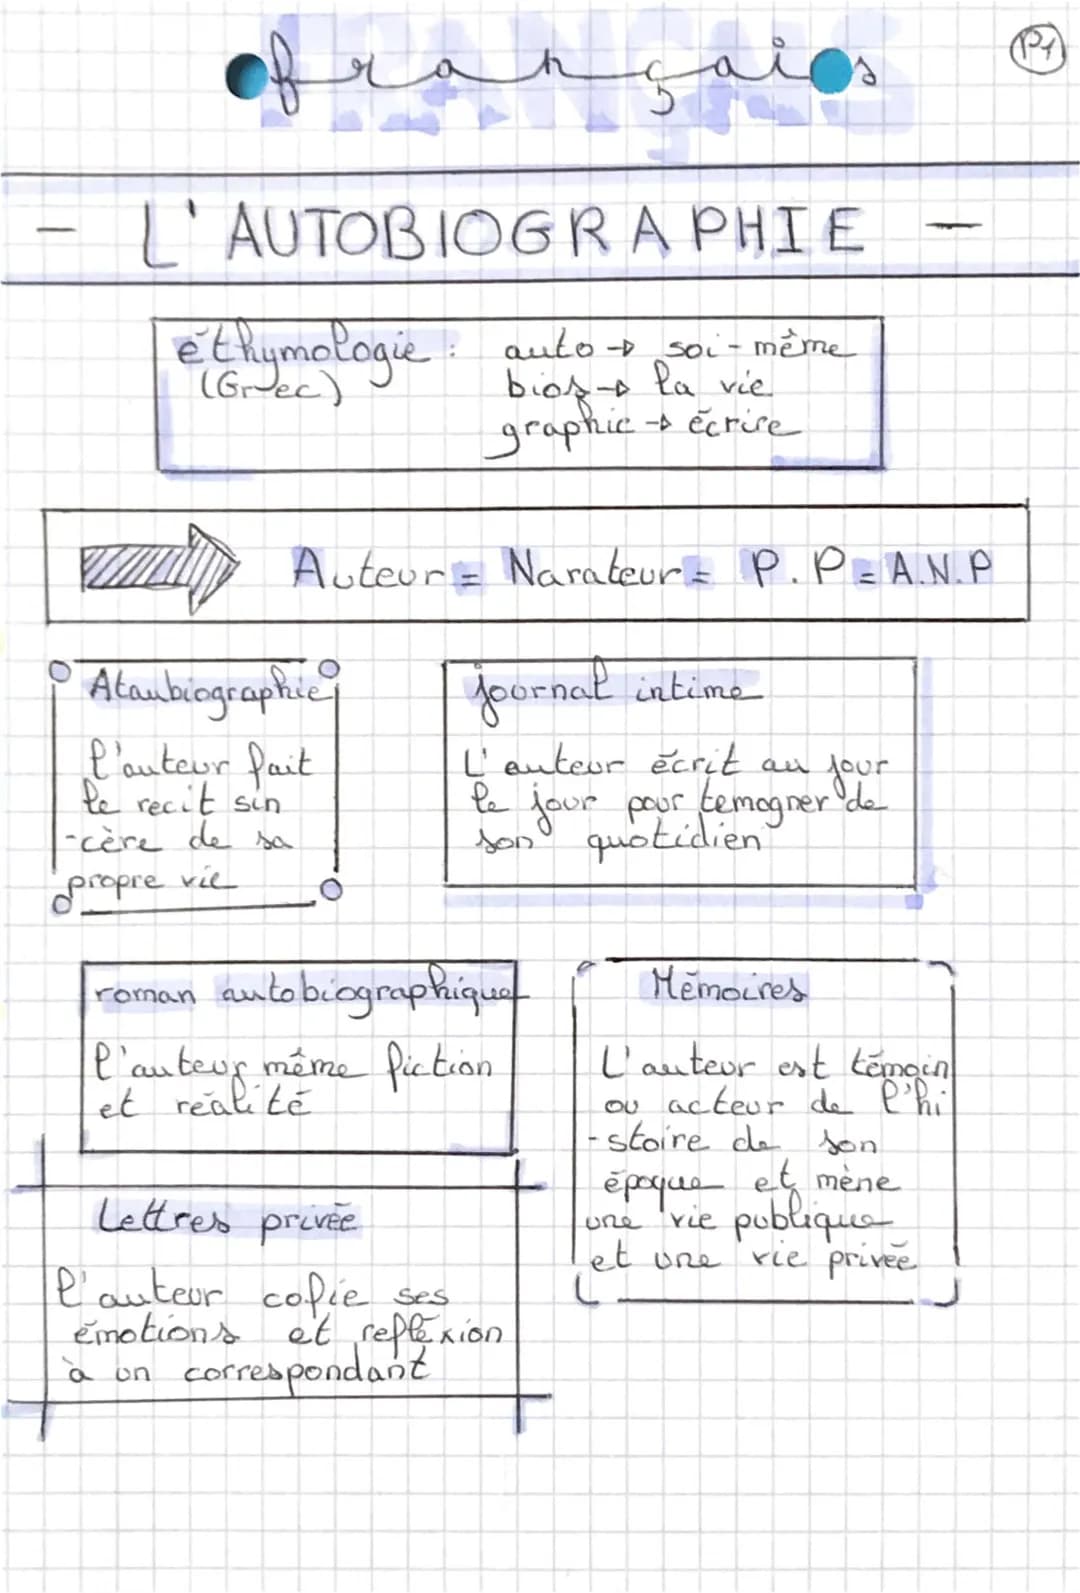 français
P1
- L'AUTOBIOGRAPHIE -
éthymologie : auto → soi-même
(Grec) bios → la vie
graphie → écrire
Auteur = Narateur = P.P = A.N.P
Ataubiographie
l'auteur fait
le recit sin
-cère de sa
propre vie
journal intime
L'auteur écrit au jour
le jour pour temogner de
son quotidien
roman autobiographique
l'auteur même fiction
et réalité
Mémoires
L'auteur est témoin
ou acteur de l'hi
-stoire de son
époque et mène
une vie publique
et une vie privée
Lettres privée
l'auteur cofie ses
émotions et refléxion
à un correspondant